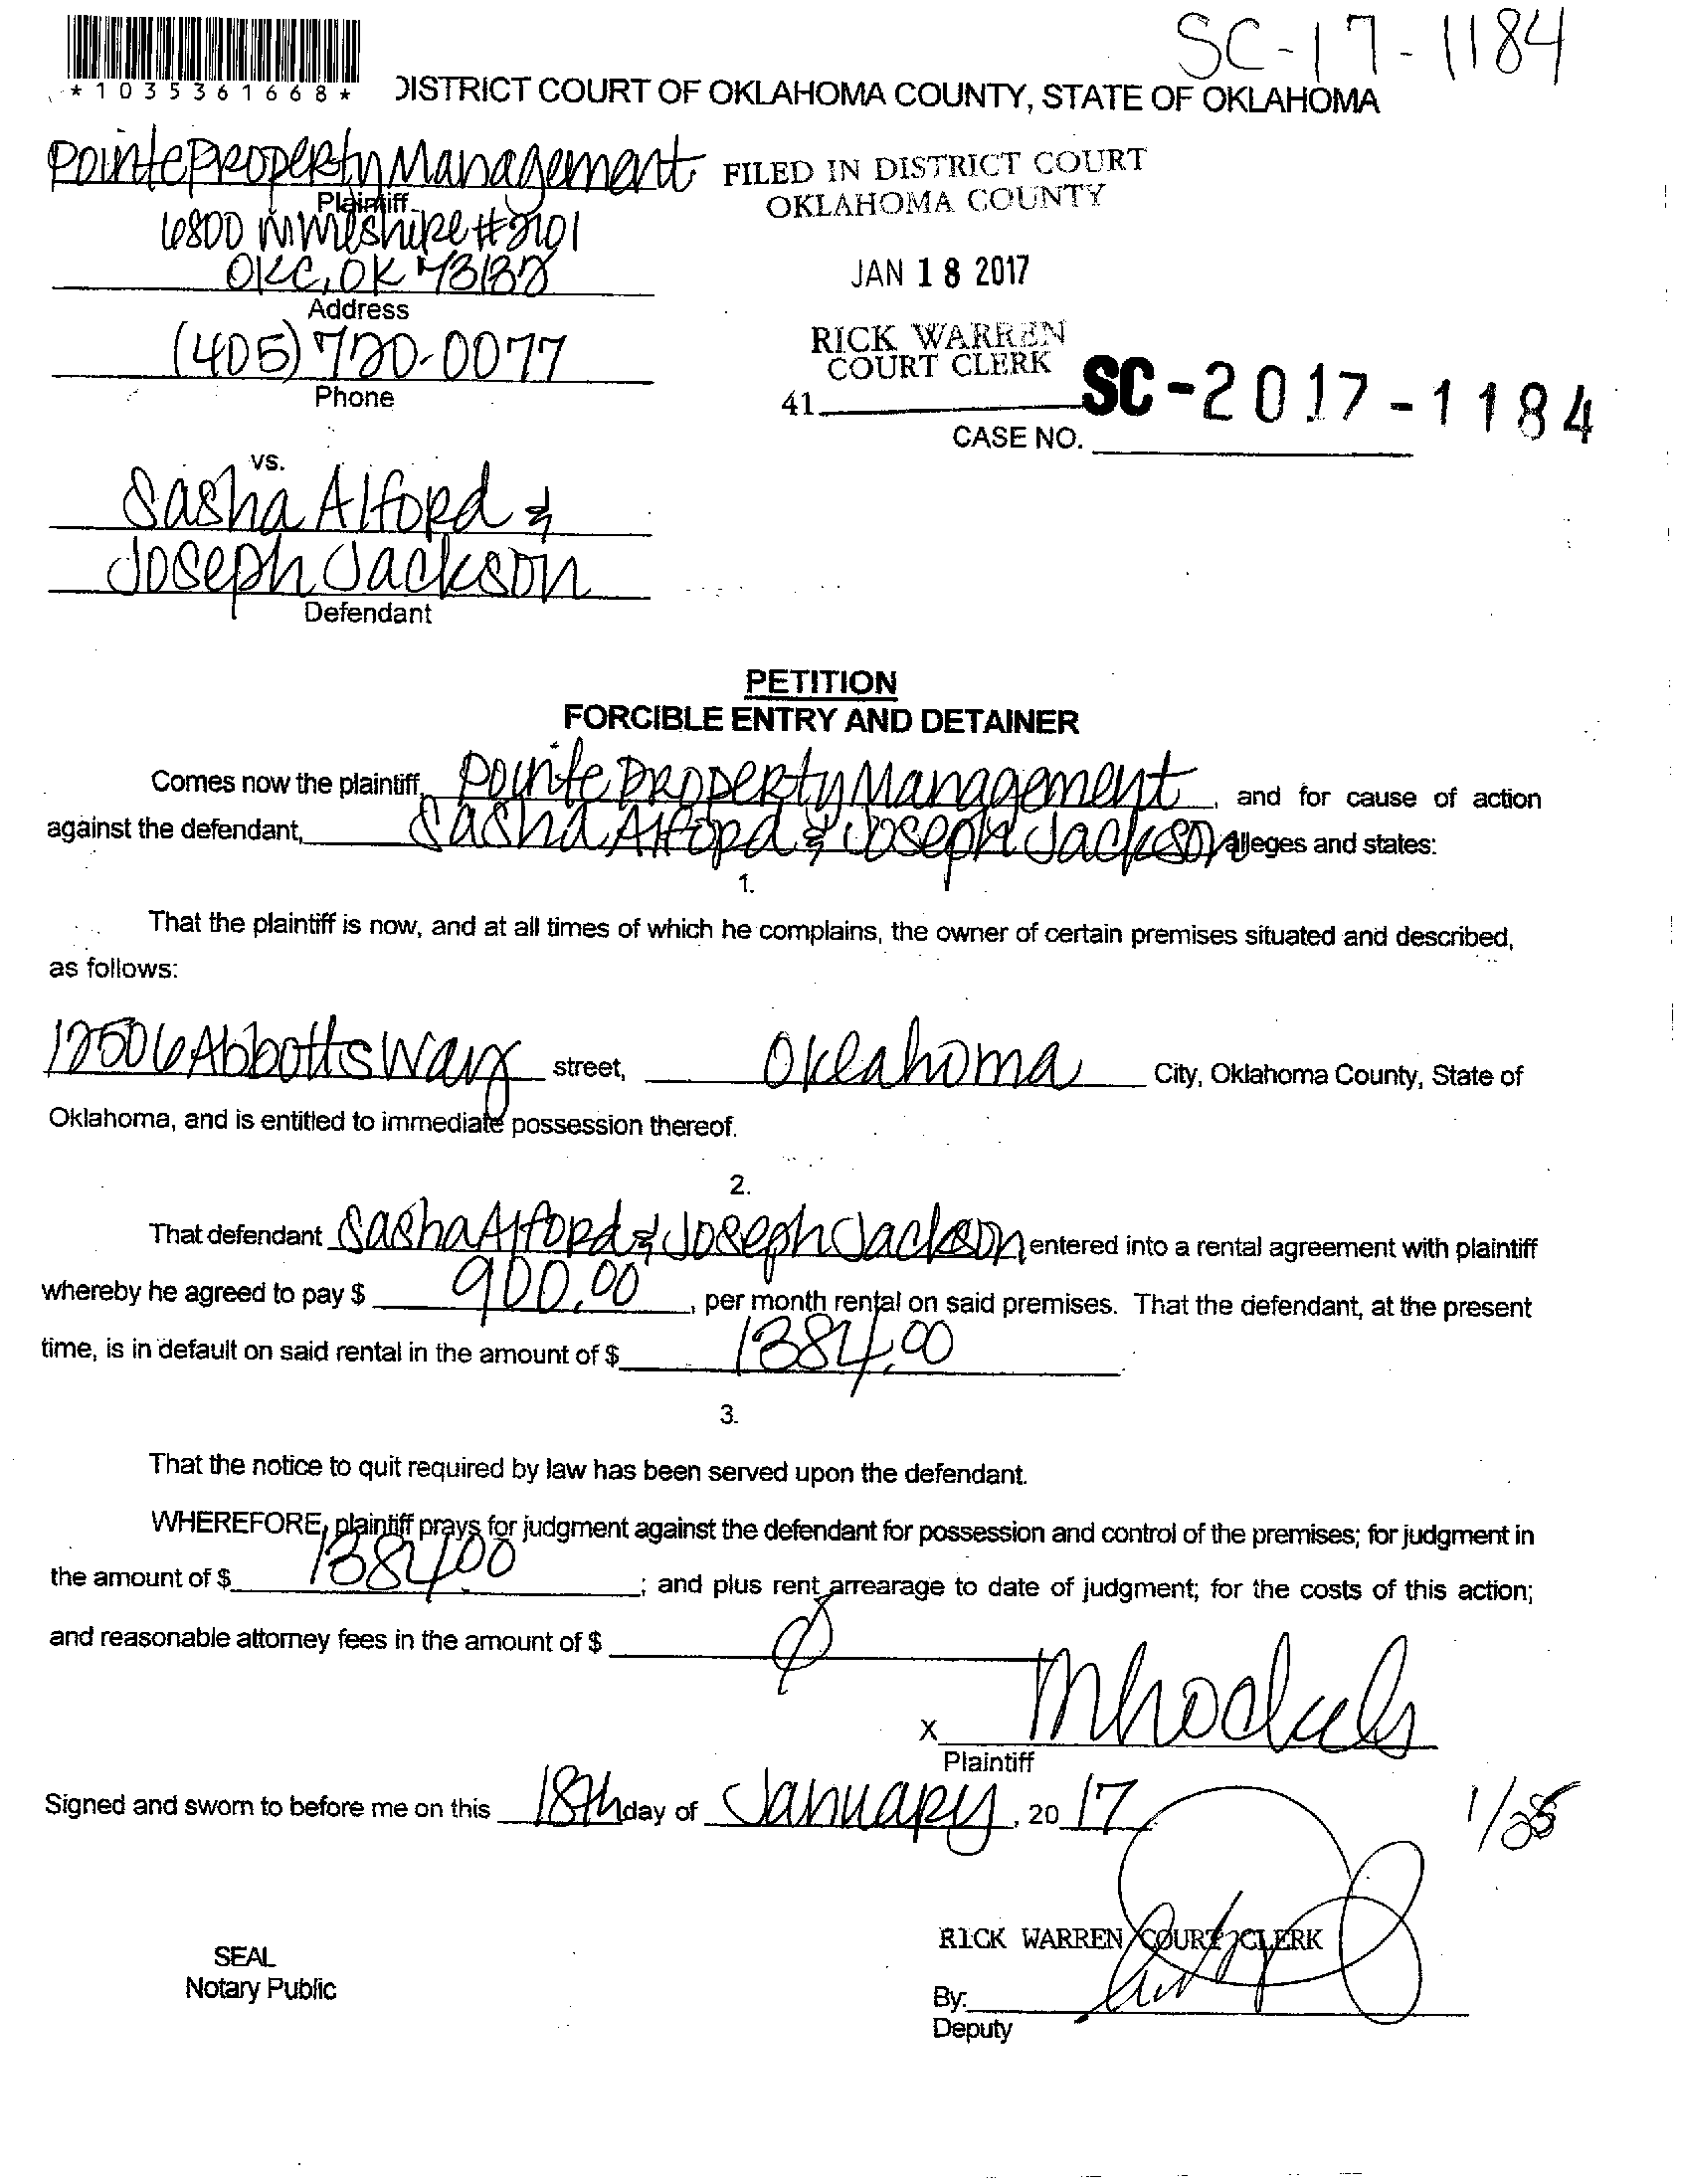 SC-17-1184
*1035361668*
DISTRICT COURT OF OKLAHOMA COUNTY, STATE OF OKLAHOMA
Pointe Property Management
Plaintiff
FILED IN DISTRICT COURT
OKLAHOMA COUNTY
6800 #2101
OKC, OK 73132
Address
JAN 18 2017
(405) 720-0077
Phone
RICK WARREN
COURT CLERK
41
SC-2017-1184
CASE NO.
vs.
Sasha Alford &
Joseph Jackson
Defendant
PETITION
FORCIBLE ENTRY AND DETAINER
Comes now the plaintiff, Pointe Property Management, and for cause of action
against the defendant, Sasha Alford & Joseph Jackson alleges and states:
1.
That the plaintiff is now, and at all times of which he complains, the owner of certain premises situated and described,
as follows:
12506 Abbotts Way street, Oklahoma City, Oklahoma County, State of
Oklahoma, and is entitled to immediate possession thereof.
2.
That defendant Sasha Alford & Joseph Jackson entered into a rental agreement with plaintiff
whereby he agreed to pay $ 900.00, per month rental on said premises. That the defendant, at the present
time, is in default on said rental in the amount of $ 1384.00
3.
That the notice to quit required by law has been served upon the defendant.
WHEREFORE, plaintiff prays for judgment against the defendant for possession and control of the premises; for judgment in
the amount of $ 1384.00; and plus rent arrearage to date of judgment; for the costs of this action;
and reasonable attorney fees in the amount of $ Ø
X
Plaintiff
Signed and sworn to before me on this 18th day of January, 2017
RICK WARREN COURT CLERK
SEAL
Notary Public
By:
Deputy